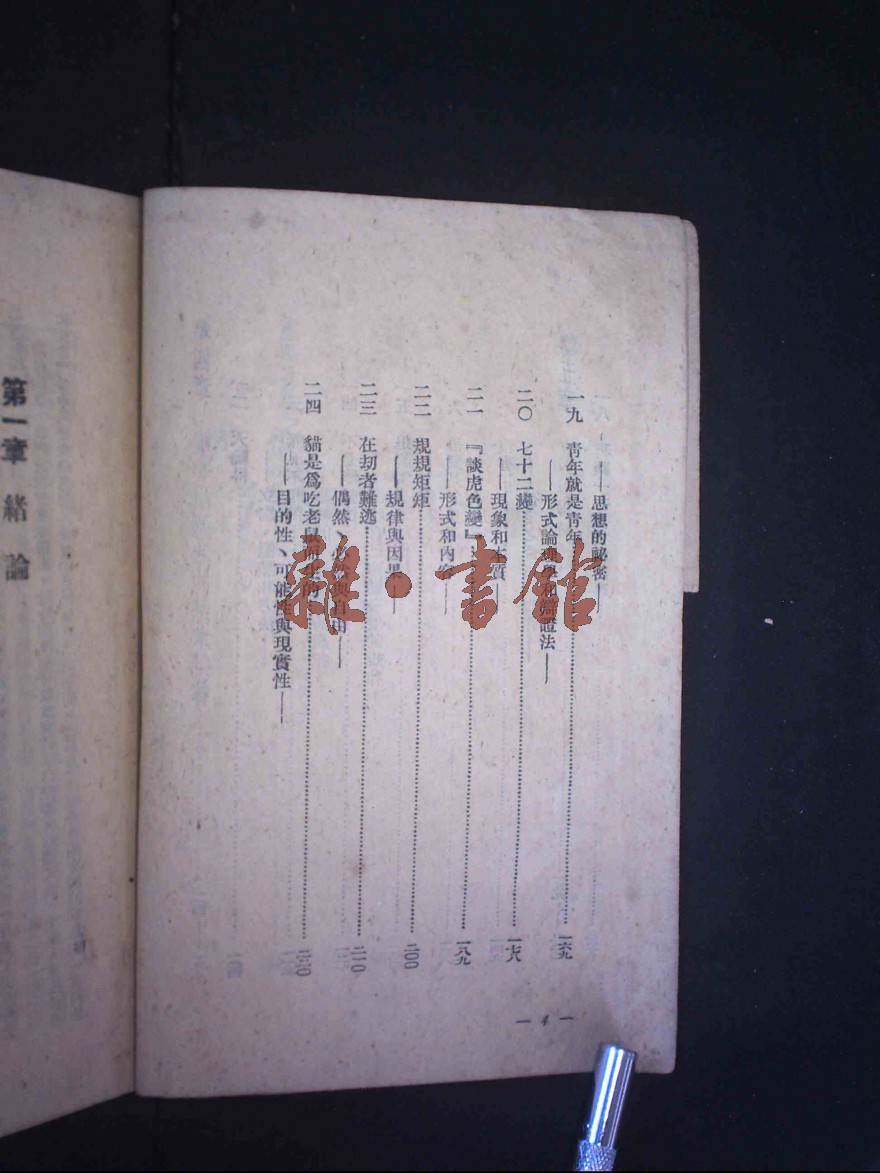 ——思想的祕密——
一九 靑年就是靑年……一六九
——形式論理學和辯證法——
二〇 七十二變……一七六
——現象和本質——
二一 『談虎色變』……一八九
——形式和內容——
二二 規規矩矩……二〇〇
——規律與因果——
二三 在劫者難逃……二一〇
——偶然、必然與自由——
二四 貓是爲吃老鼠而生的……二二〇
——目的性、可能性與現實性——
— 4 —
第一章 緒 論
雜·書館